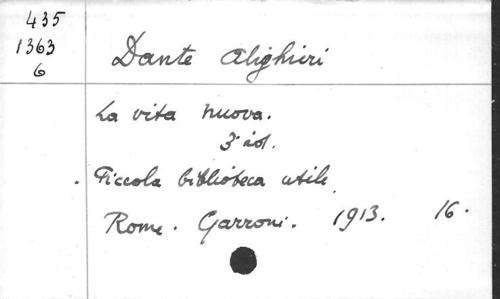 435
1363
6
Dante Alighieri
La vita nuova.
3
Piccola biblioteca utile
Rome. Garroni. 1913. 16.